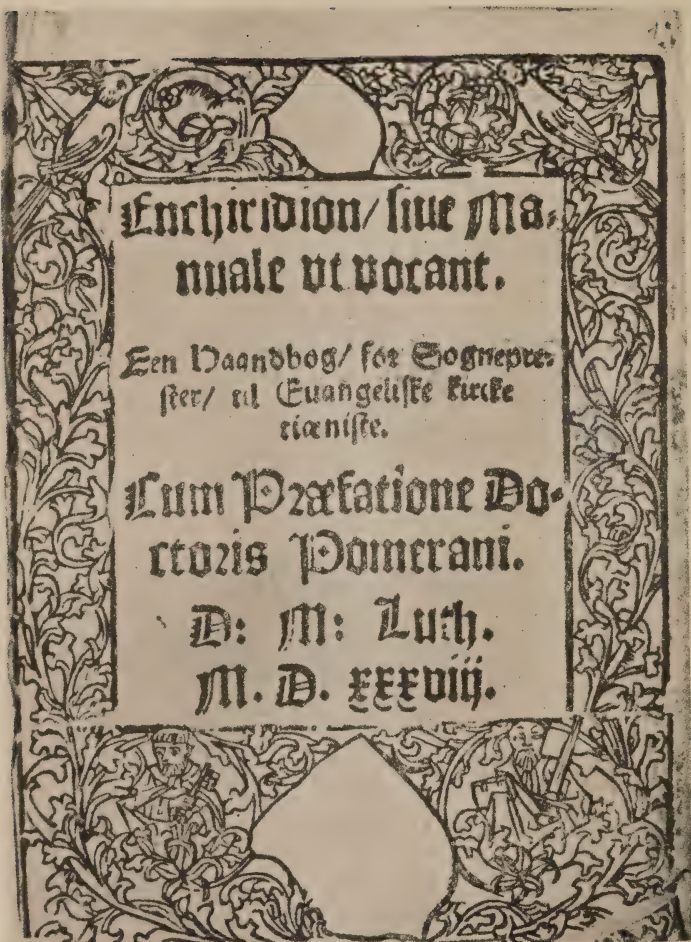 Enchiridion/ siue Ma-
nuale vt vocant.
Een Haandbog/ for Sognepre-
ster/ til Euangeliske kircke
tiæniste.
Cum Præfatione Do-
ctoris Pomerani.
D: M: Luth.
M. D. xxxviij.